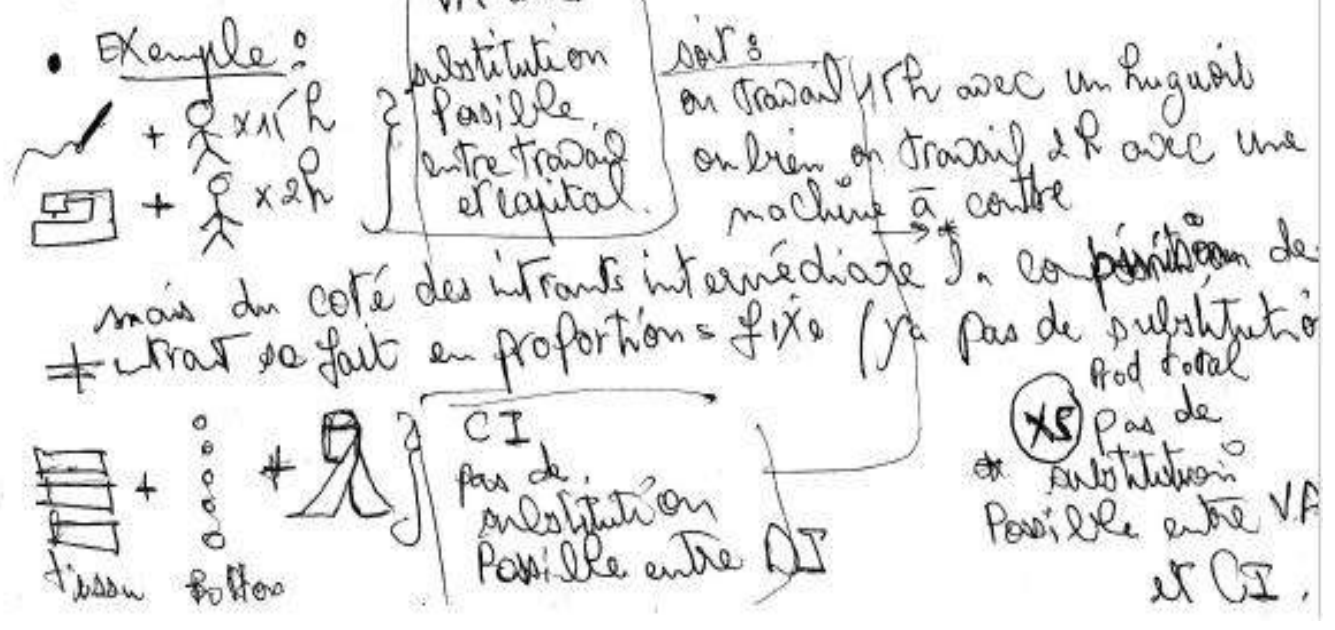 • Exemple :
+ x 15 h
+ x 2h
substitution
Possible
entre travail
et capital.
soit :
on travail 15h avec un
ou bien on travail 2h avec une
machine à
mais du coté des intrants intermédiare la composition de
se fait en proportions fixe (ya pas de substitution
+ +
tissu
CI
pas de
substitution
Possible entre DI
Prod total
XS pas de
* substitution
Possible entre VA
et CI.